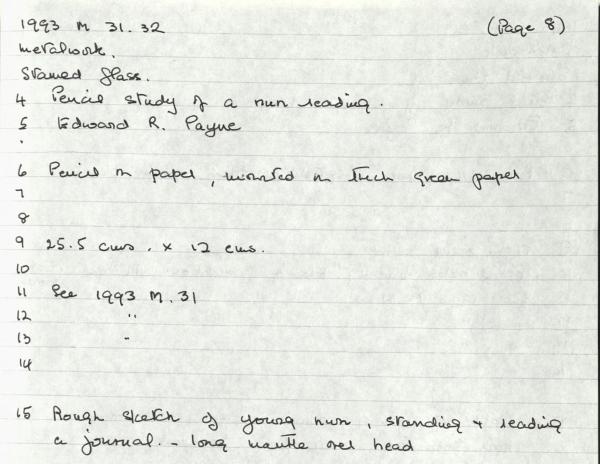 1993 M 31.32 (Page 8)
metalwork.
Stained glass.
4 Pencil study of a nun reading.
5 Edward R. Payne
6 Pencil on paper, mounted on thick green paper
7
8
9 25.5 cms. x 12 cms.
10
11 See 1993 M.31
12 "
13 "
14
15 Rough sketch of young nun, standing + reading
a journal. - long mantle over head